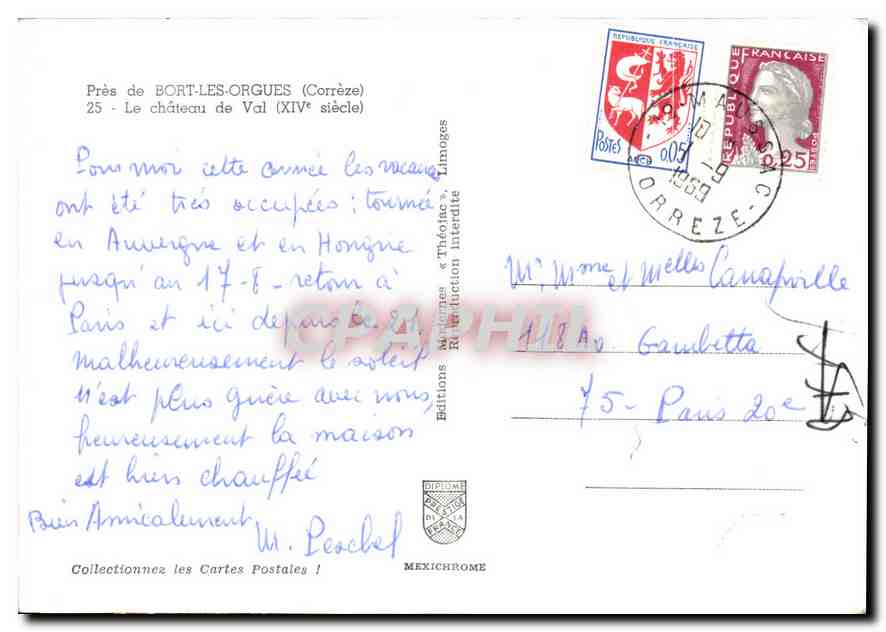 Près de BORT-LES-ORGUES (Corrèze)
25 - Le château de Val (XIVe siècle)
Pour moi cette année les vacances
ont été très occupées : tournée
en Auvergne et en Hongrie
jusqu'au 17-8 - retour à
Paris et ici depuis le
malheureusement le soleil
n'est plus guère avec nous,
heureusement la maison
est bien chauffée
Bien Amicalement
M. Peschel
Collectionnez les Cartes Postales !
Editions Modernes « Théojac », Limoges
Reproduction interdite
DIPLOME
PRESTIGE
DE LA
FRANCE
MEXICHROME
REPUBLIQUE FRANÇAISE
POSTES
AUCH
0,05
REPUBLIQUE FRANÇAISE
POSTES
0,25
1-9
1969
CORREZE
Mr Mme et Melles Canapville
118 Av. Gambetta
75 - Paris 20e
CPAPHIL